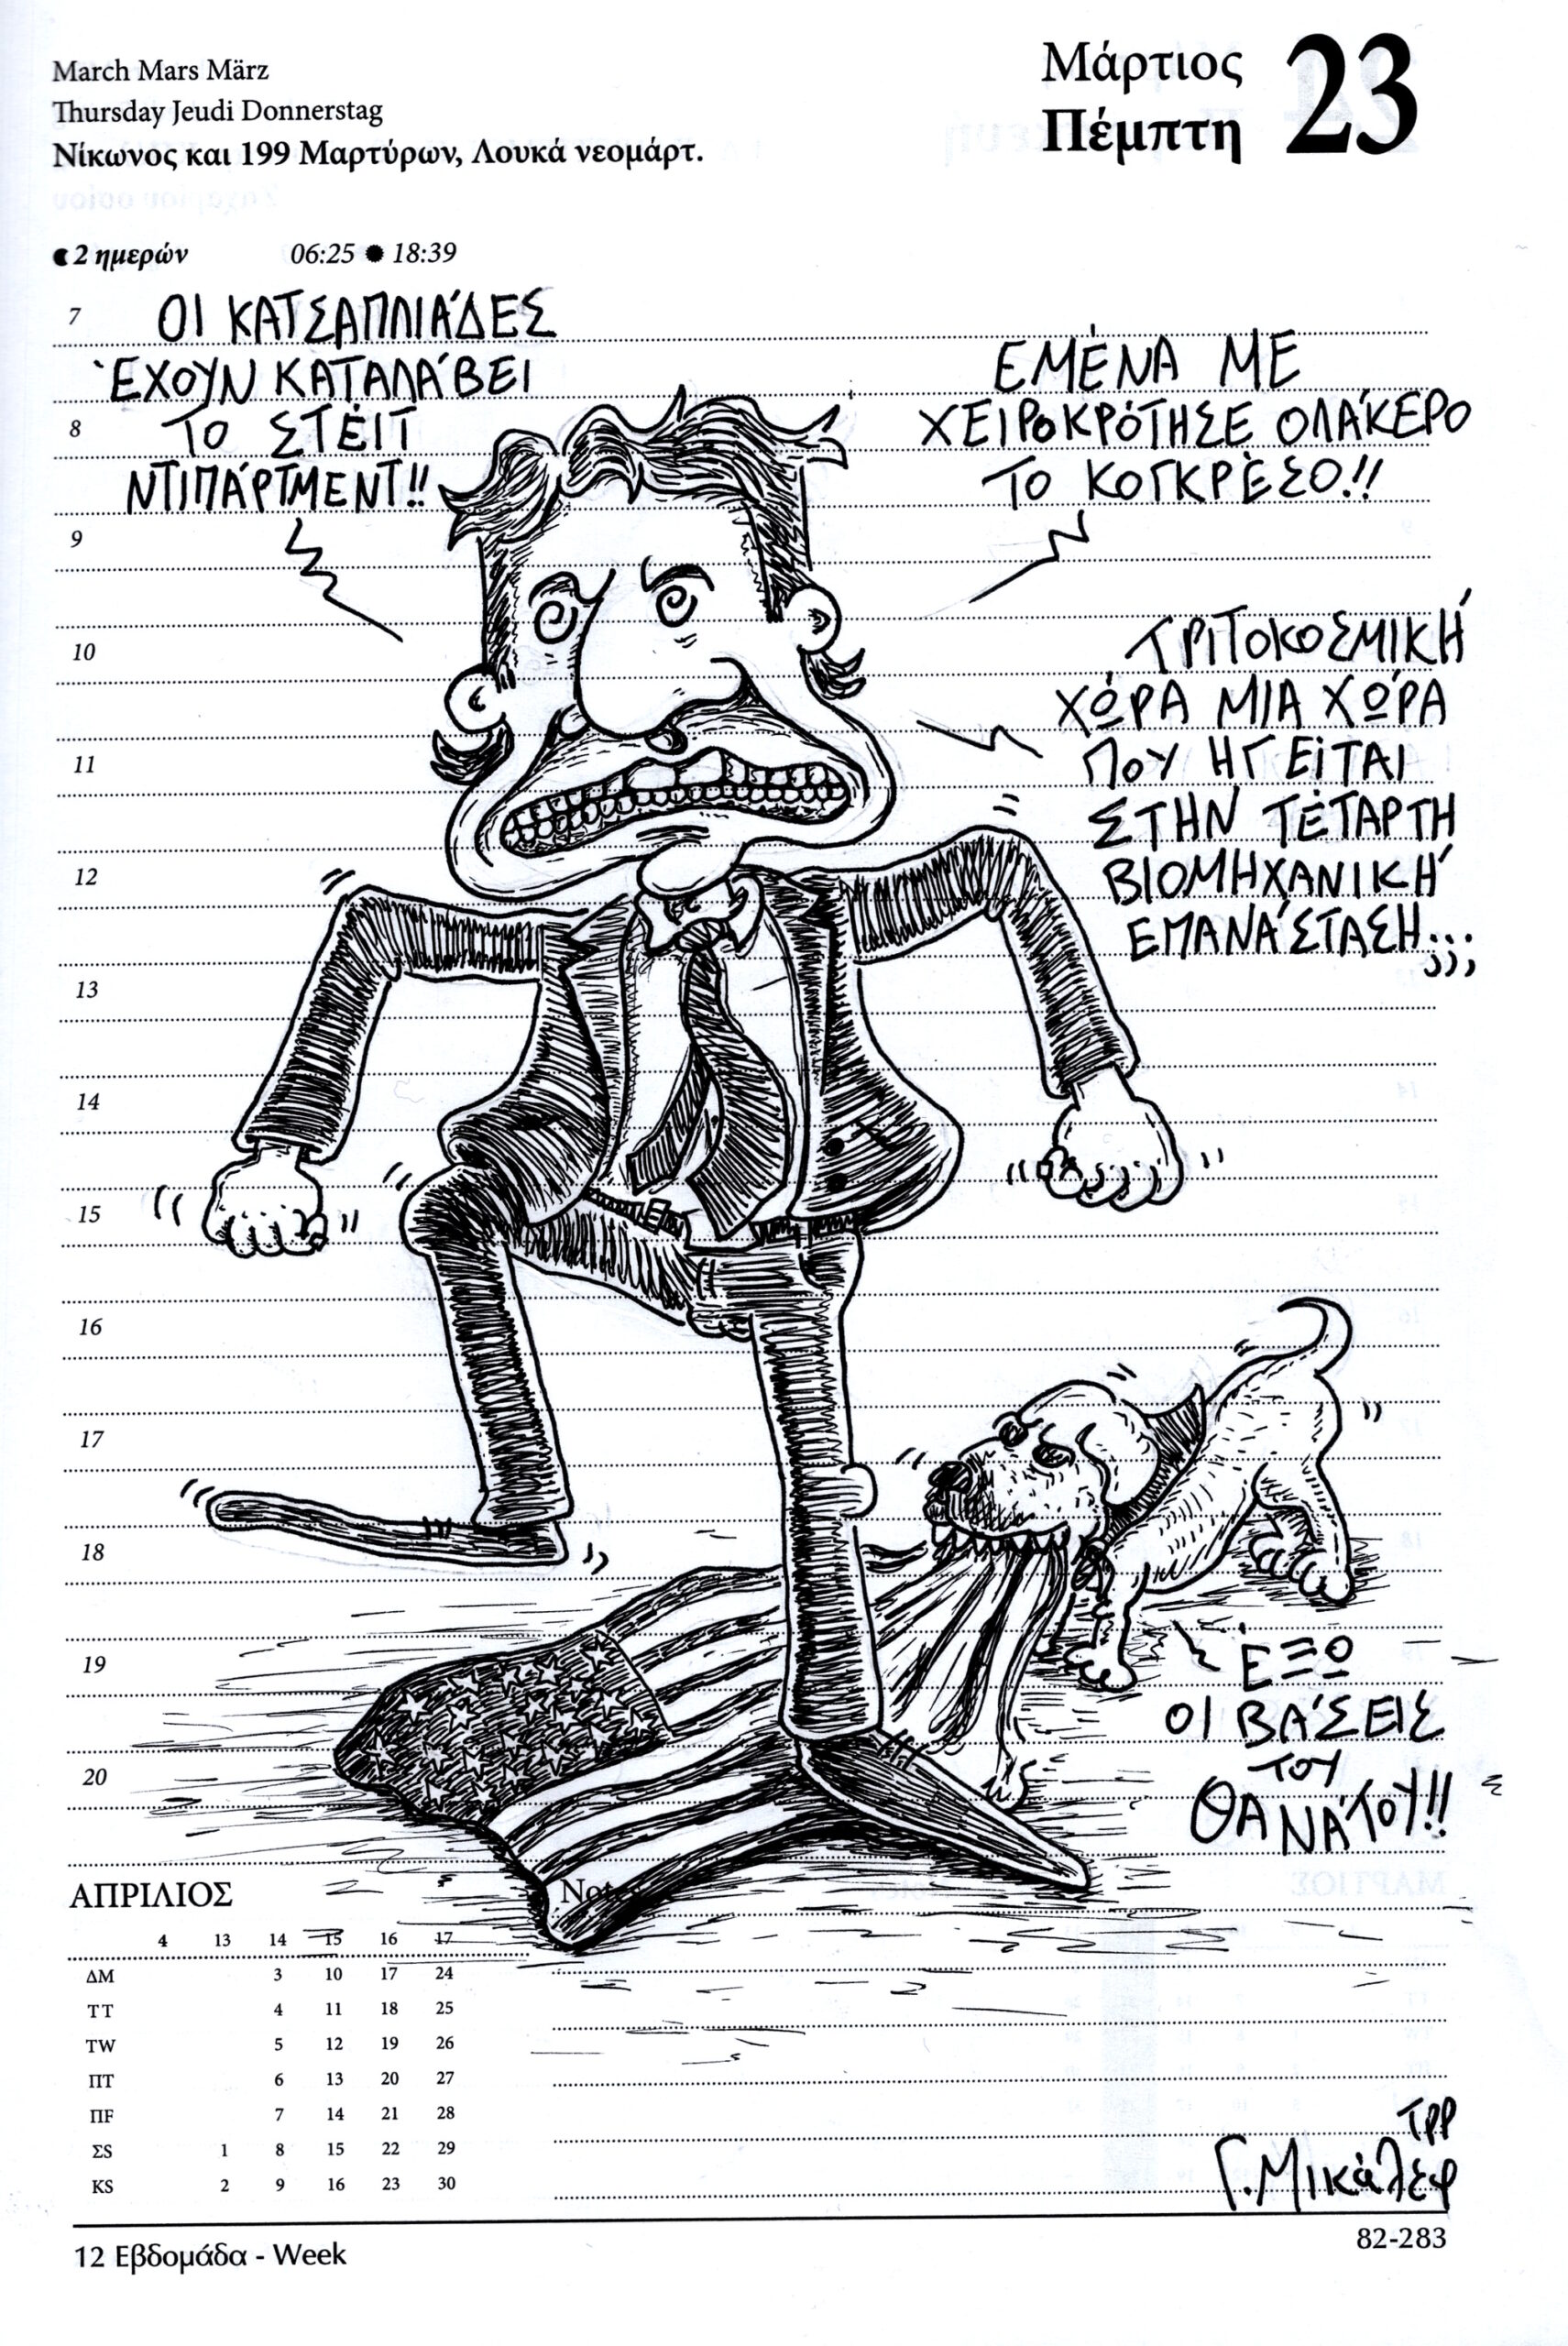 March Mars März
Thursday Jeudi Donnerstag
Νίκωνος και 199 Μαρτύρων, Λουκά νεομάρτ.
Μάρτιος
Πέμπτη
23
2 ημερών 06:25 18:39
ΟΙ ΚΑΤΣΑΠΛΙΆΔΕΣ
ΈΧΟΥΝ ΚΑΤΑΛΆΒΕΙ
ΤΟ ΣΤΈΙΤ
ΝΤΙΠΆΡΤΜΕΝΤ!!
ΕΜΈΝΑ ΜΕ
ΧΕΙΡΟΚΡΌΤΗΣΕ ΟΛΆΚΕΡΟ
ΤΟ ΚΟΓΚΡΈΣΟ!!
ΤΡΙΤΟΚΟΣΜΙΚΉ
ΧΏΡΑ ΜΙΑ ΧΏΡΑ
ΠΟΥ ΗΓΕΊΤΑΙ
ΣΤΗΝ ΤΈΤΑΡΤΗ
ΒΙΟΜΗΧΑΝΙΚΉ
ΕΠΑΝΆΣΤΑΣΗ;;;
7
8
9
10
11
12
13
14
15
16
17
18
19
20
ΈΞΩ
ΟΙ ΒΆΣΕΙΣ
ΤΟΥ
ΘΑΝΆΤΟΥ!!
ΑΠΡΙΛΙΟΣ
Notes
4 13 14 15 16 17
ΔΜ 3 10 17 24
ΤΤ 4 11 18 25
ΤW 5 12 19 26
ΠΤ 6 13 20 27
ΠF 7 14 21 28
ΣS 1 8 15 22 29
KS 2 9 16 23 30
ΤΡΡ
Γ. Μικάλεφ
12 Εβδομάδα - Week
82-283